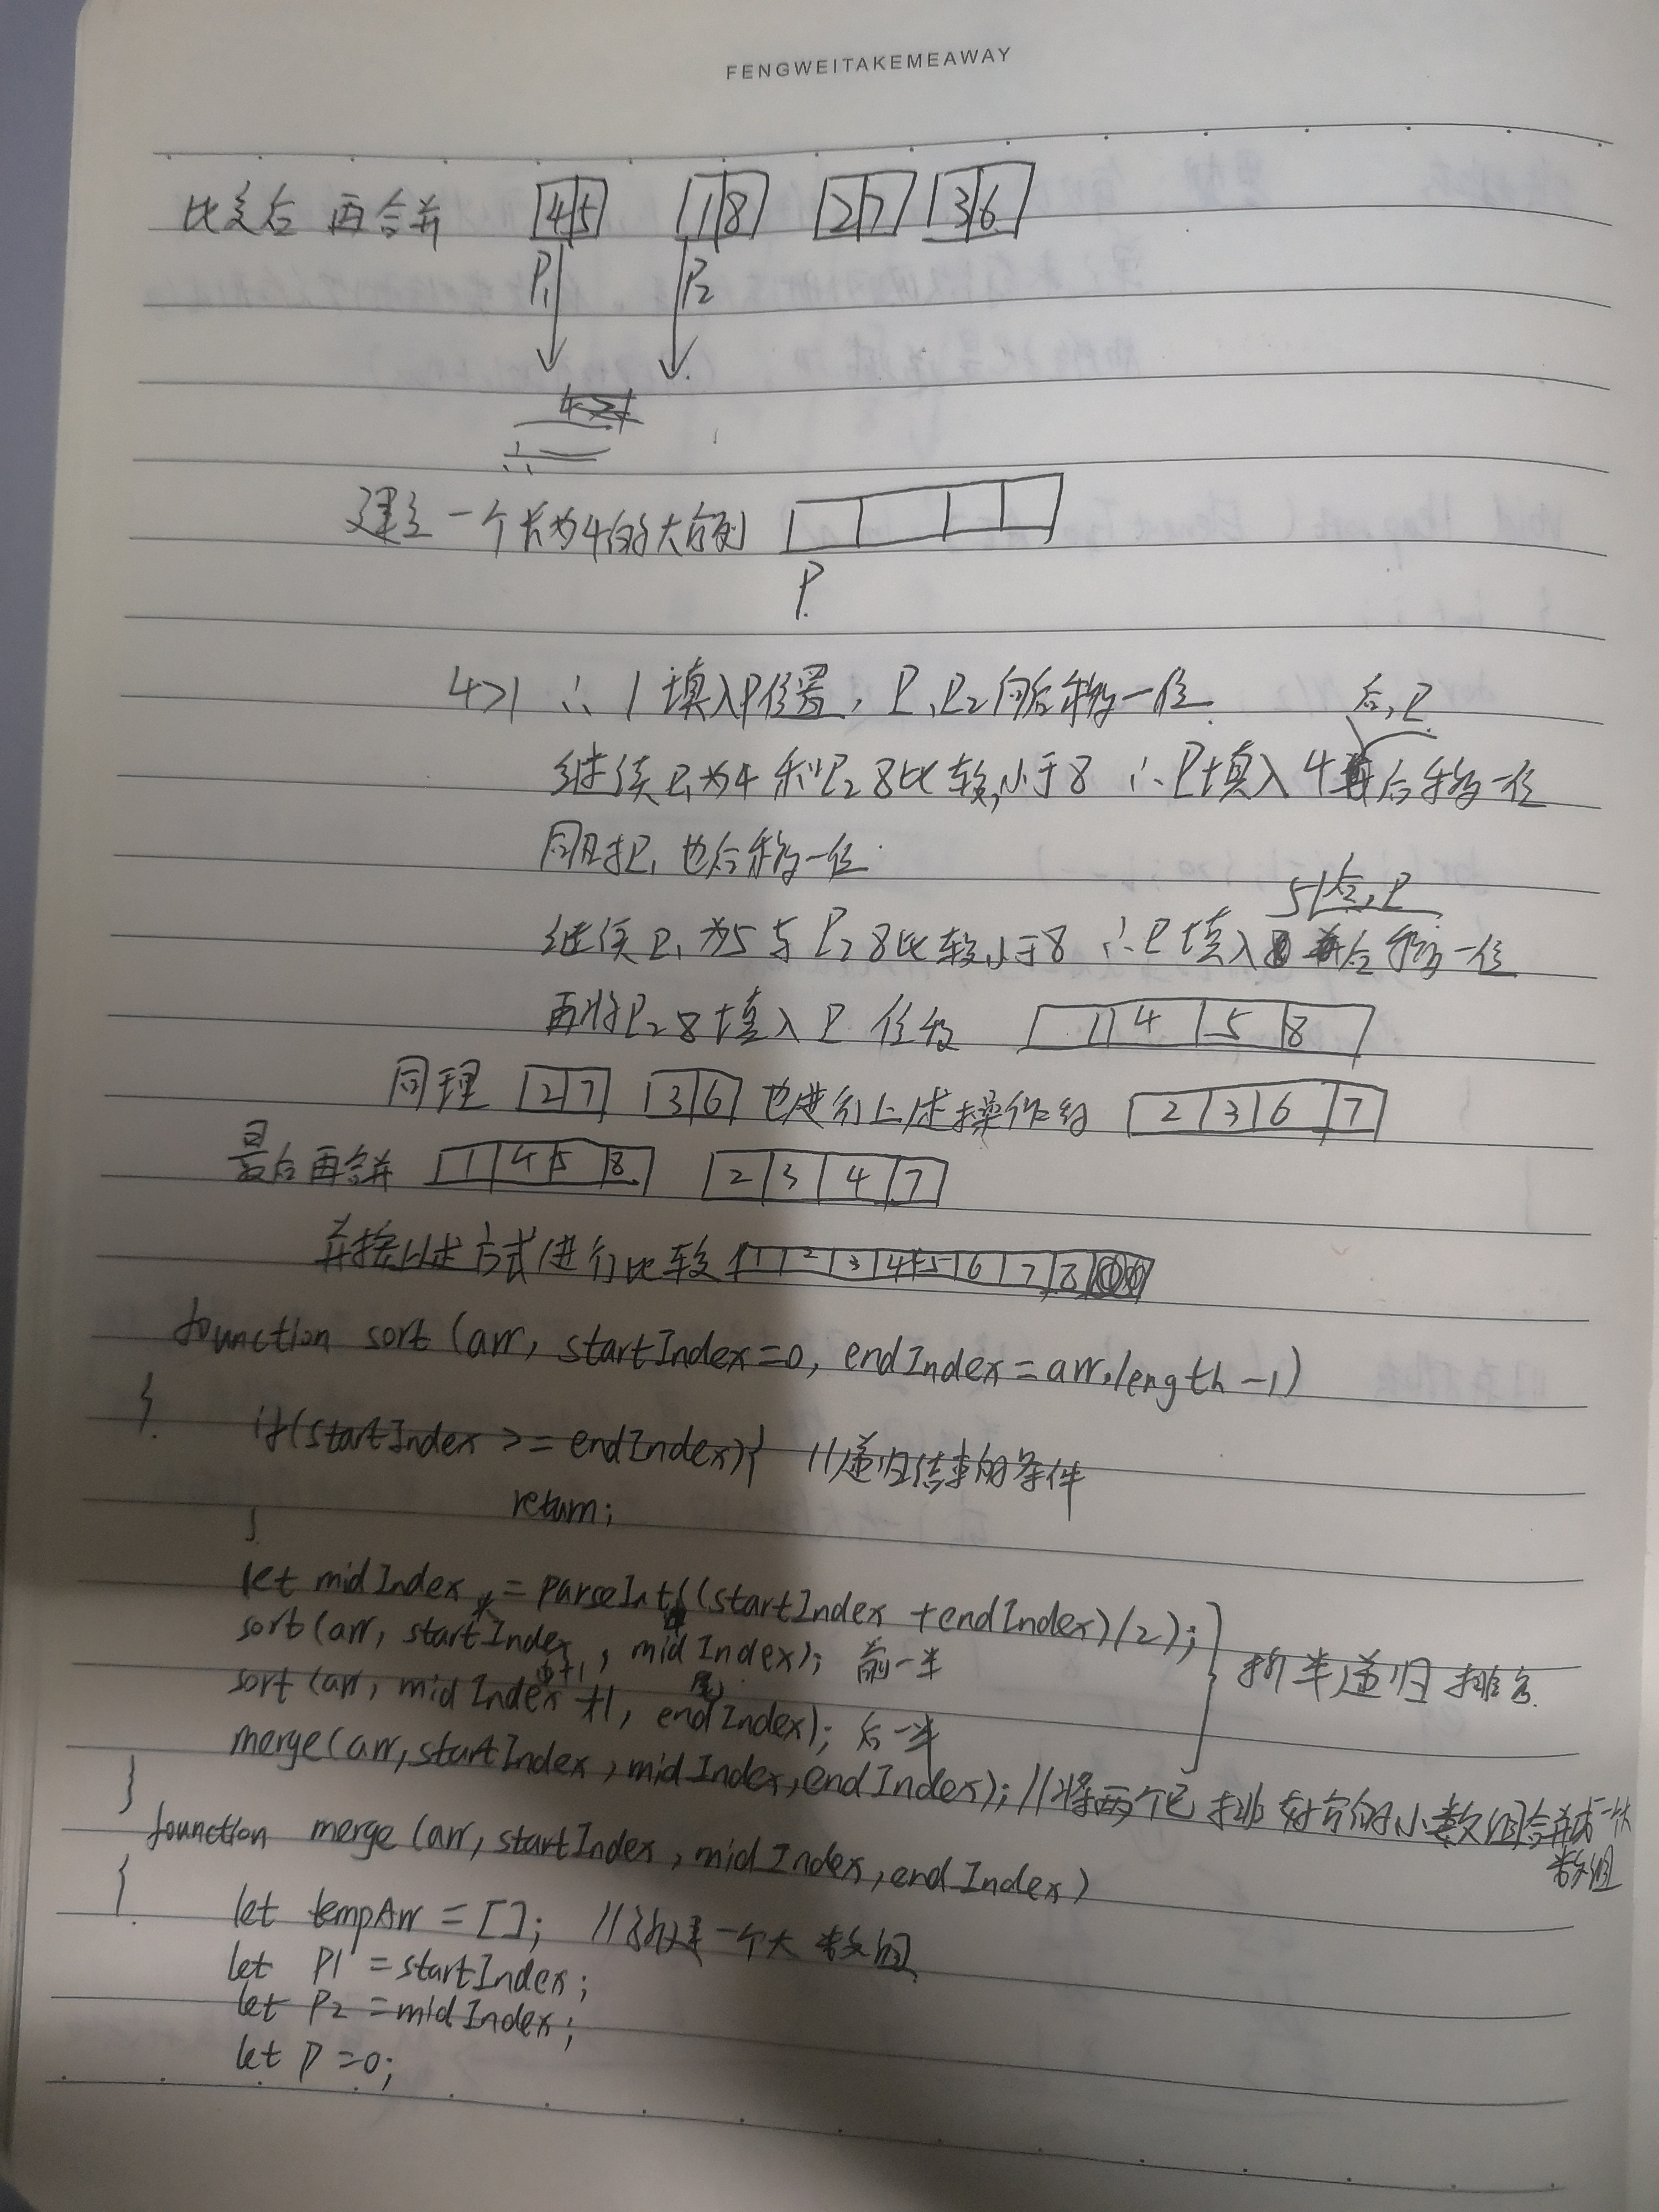 FENGWEITAKEMEAWAY
比完后 再合并 4 5 1 8 2 7 3 6
P1 P2
建立一个长为4的大 P
4>1 ∴ 1填入P位置，P、P2向后移一位
后，P
继续P1为4和P2 8比较，小于8 ∴P填入4后移一位
同时把P1也后移一位
5后，P
继续P1为5与P2 8比较小于8 ∴P填入后移一位
再将P2 8填入P 1 4 5 8
同理 2 7 3 6 也进行上述操作的 2 3 6 7
最后再合并 1 4 5 8 2 3 4 7
并按以上述方式进行比较 1 2 3 4 5 6 7 8
function sort (arr, startIndex=0, endIndex=arr.length-1)
{
if(startIndex >= endIndex){ //递归结束的条件
return;
}
let midIndex = parseInt((startIndex+endIndex)/2);
sort(arr, startIndex, midIndex); 前一半
折半递归排名
sort(arr, midIndex+1, endIndex); 后一半
merge(arr, startIndex, midIndex, endIndex); //将两个已排好序的小数组合并成一个大
数组
}
function merge (arr, startIndex, midIndex, endIndex)
{
let tempArr = []; //新建一个大数组
let P1 = startIndex;
let P2 = midIndex;
let P = 0;